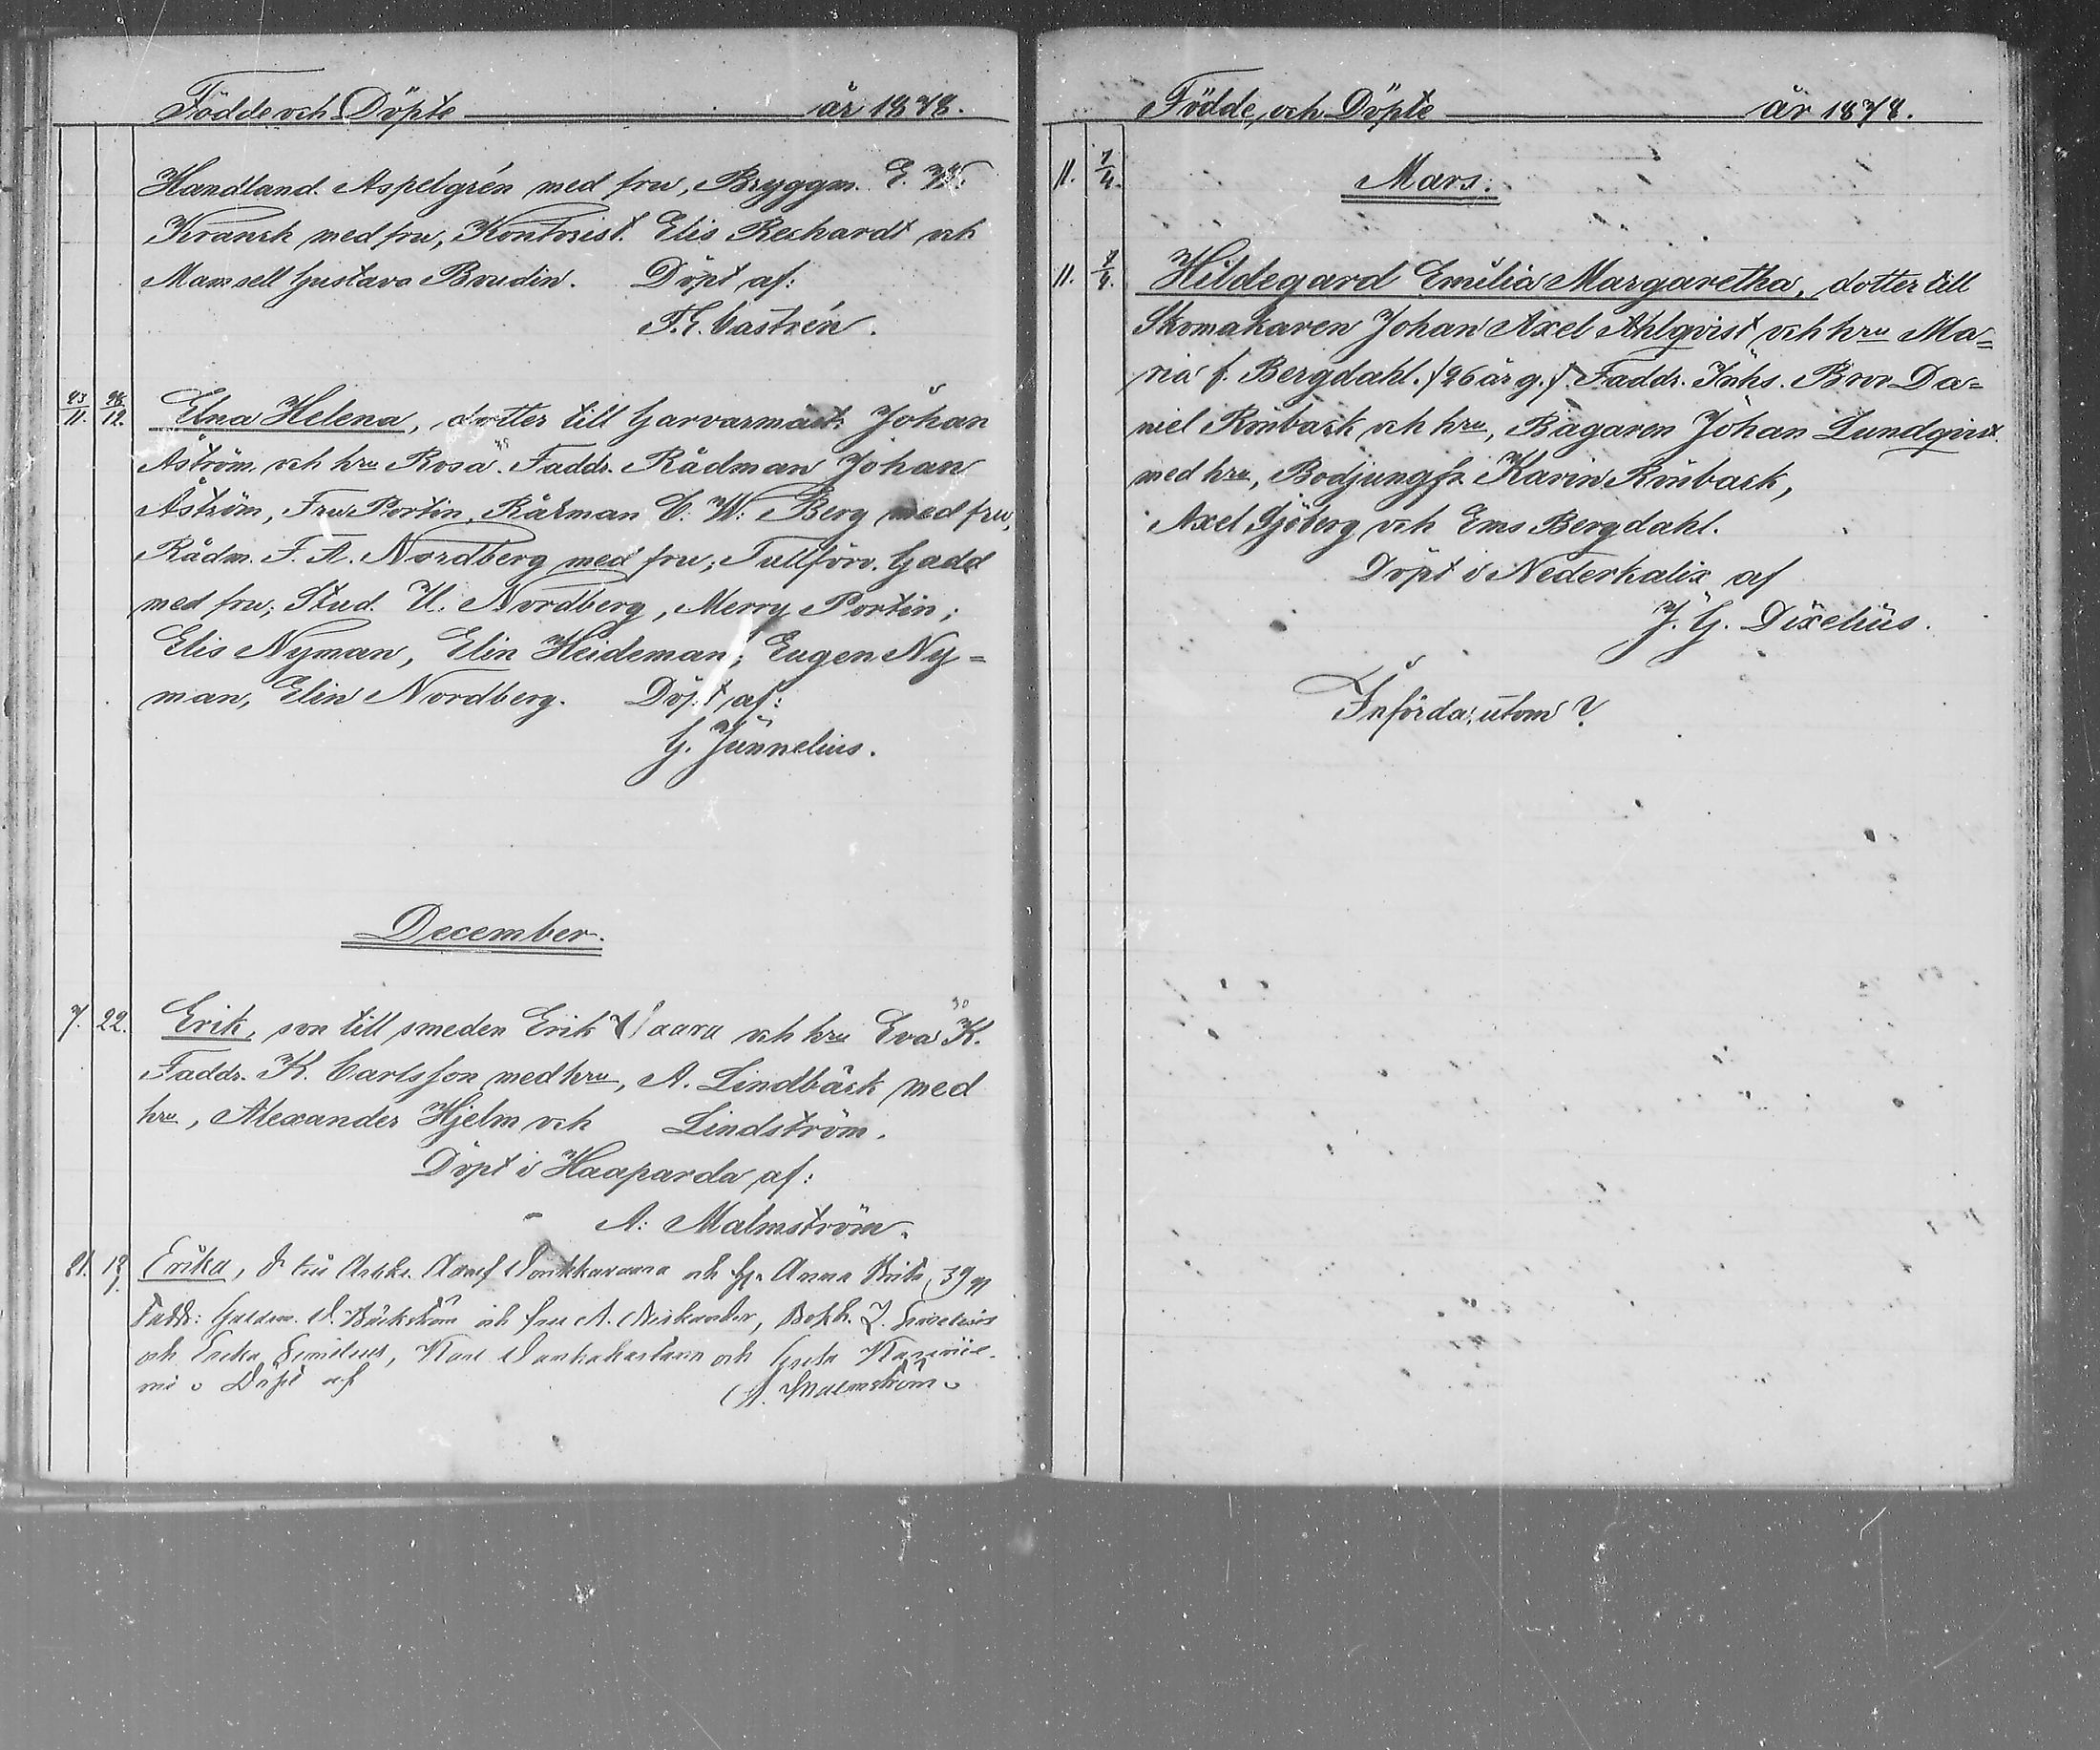 Födde och Döpte år 1878.
Handland. Aspelgrén med fru, Bryggm. E. W.
Kranck med fru, Kontorist. Elis Rechardt och
Mamsell Gustava Boudin. Döpt af:
F. E. Castrén.
23/11. 26/12. Elna Helena, dotter till Garvarmäst. Johan
Åström och hru Rosa. Faddr. Rådman Johan
Åström, Fru Portin, Rådman C. W. Berg med fru,
Rådm. F. A. Nordberg med fru; Tullförv. Gadd
med fru; Stud. U. Nordberg, Merry Portin;
Elis Nyman, Elin Heideman; Eugen Ny=
man, Elin Nordberg. Döpt af:
G. Junnelius.
December.
7. 22. Erik, son till smeden Erik Vaara och hru Eva K. 30
Faddr. K. Carlsson med hru, A. Lindbäck med
hru, Alexander Hjelm och Lindström.
Döpt i Haaparda af:
A. Malmström.
21. Erika, d. till Adolf och h. Anna Brita, 39
Faddr: Bäckström och fru A.
och Erika och Greta
Döpt af A. Malmström.
Födde och Döpte år 1878.
11. 7/4. Mars.
11. 7/4. Hildegard Emilia Margaretha, dotter till
Skomakaren Johan Axel Ahlqvist och hru Ma=
ria f. Bergdahl. /26 år g./ Faddr. Inhs. Bror Da=
niel Rönback och hru, Bagaren Johan Lundqvist
med hru, Bodjungfr. Karin Rönback,
Axel Sjöberg och Ems Bergdahl.
Döpt i Nederkalix af
J. G. Dixelius.
Införda, utom ?